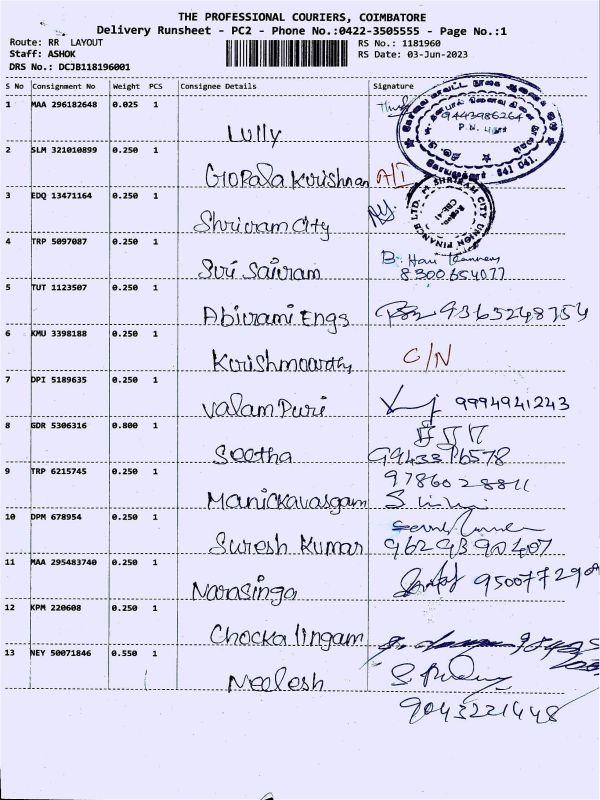 THE PROFESSIONAL COURIERS, COIMBATORE
Delivery Runsheet - PC2 - Phone No.:0422-3505555 - Page No.:1
Route: RR LAYOUT
RS No.: 1181960
Staff: ASHOK
RS Date: 03-Jun-2023
DRS No.: DCJB118196001
S No Consignment No Weight PCS Consignee Details Signature
1 MAA 296182648 0.025 1 Lully
9443986264
641 041.
2 SLM 321010899 0.250 1 Gopala Krishnan A/I
3 EDQ 13471164 0.250 1 Shriram City
SHRIRAM CITY UNION FINANCE LTD.
4 TRP 5097087 0.250 1 Sri Sairam B. Hari
8300654077
5 TUT 1123507 0.250 1 Abirami Engs 9365248754
6 KMU 3398188 0.250 1 Krishmoorthy C/N
7 DPI 5189635 0.250 1 Valam Puri 9994941243
8 GDR 5306316 0.800 1 Seetha
9 TRP 6215745 0.250 1 Manickavasgam 9786028811
10 DPM 678954 0.250 1 Suresh Kumar
11 MAA 295483740 0.250 1 Narasinga
12 KPM 220608 0.250 1 Chockalingam
13 NEY 50071846 0.550 1 Neelesh
9043221448